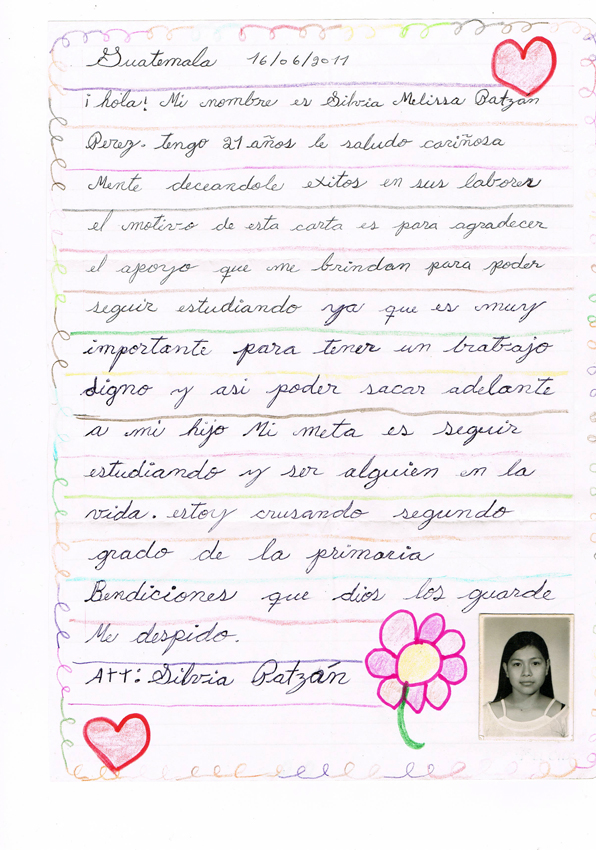 Guatemala 16/06/2011
¡hola! Mi nombre es Silvia Melissa Patzán
Perez. tengo 21 años le saludo cariñosa
Mente deceandole exitos en sus labores
el motivo de esta carta es para agradecer
el apoyo que me brindan para poder
seguir estudiando ya que es muy
importante para tener un trabajo
digno y asi poder sacar adelante
a mi hijo Mi meta es seguir
estudiando y ser alguien en la
vida. estoy crusando segundo
grado de la primaria
Bendiciones que dios los guarde
Me despido.
Att: Silvia Patzán